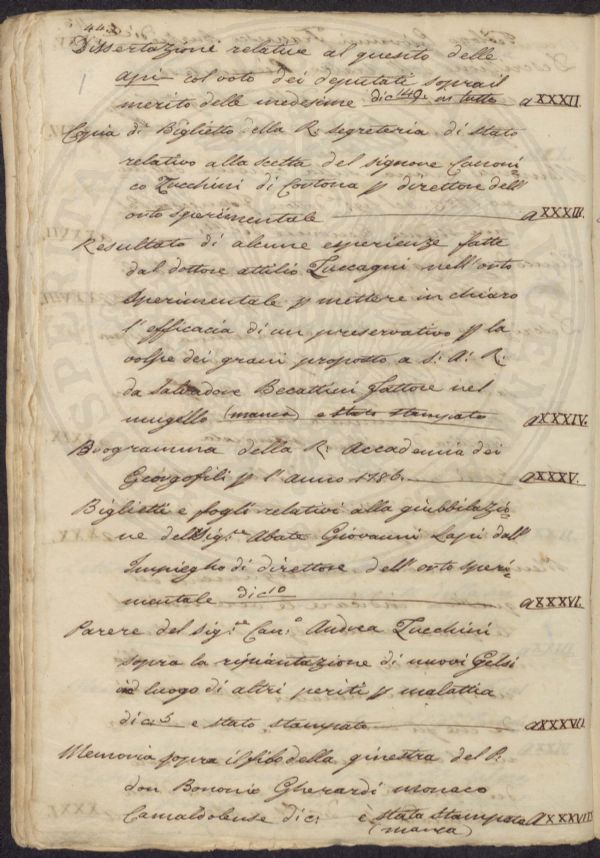 44.
Dissertazione relative al quesito delle
api col voto dei deputati sopra il
merito delle medesime di c. 149. in tutto a XXXII.
Copia di Biglietto della R. segreteria di stato
relativo alla scelta del signore Canoni
co Zucchini di Cortona p direttore dell'
orto sperimentale a XXXIII.
Resultato di alcune esperienze fatte
dal dottore attilio Zuccagni nell'orto
sperimentale p mettere in chiaro
l'efficacia di un preservativo p la
volpe dei grani proposto a S. A. R.
da Salvadore Becattini fattore nel
mugello (manca) e stato stampato a XXXIV.
Programma della R. Accademia dei
Georgofili p l'anno 1786. a XXXV.
Biglietti e fogli relativi alla giubbilazio
ne dell Sig.re Abate Giovanni Lapi dall'
Impiegho di direttore dell'orto speri
mentale di c. 10 a XXXVI.
Parere del Sig.re Can.o Andrea Zucchini
sopra la ripiantazione di nuovi Gelsi
in luogo di altri periti p malattia
di c. 5 e stato stampato a XXXVII.
Memoria sopra il filo della ginestra del P.
don Bononio Gherardi monaco
Camaldolense di c. è stata stampata a XXXVIII
(manca)